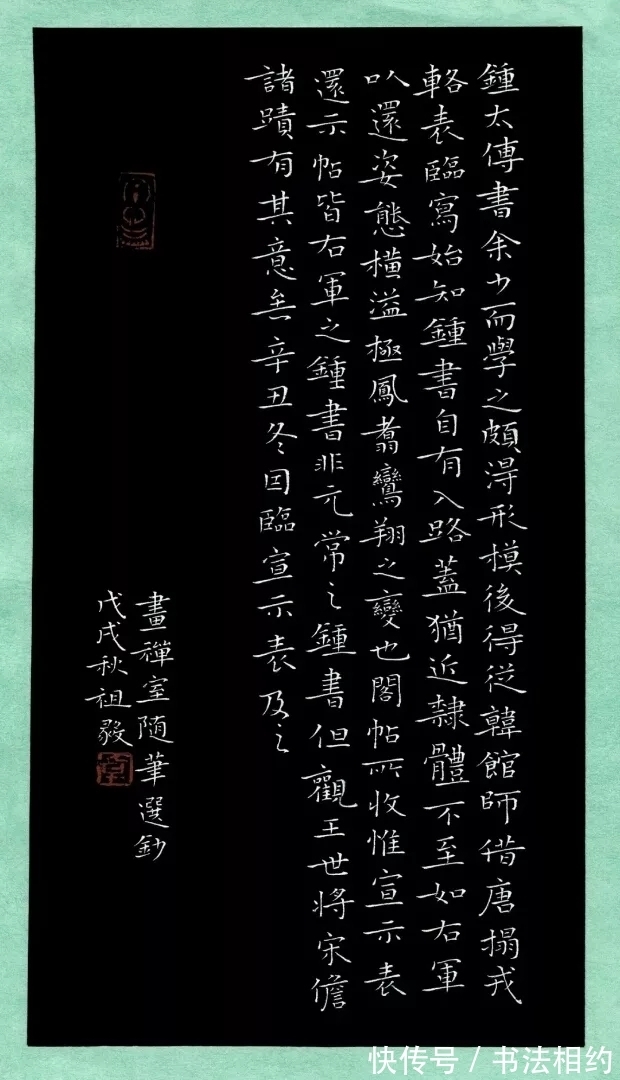 鍾太傅書余少而學之頗淂形模後得從韓館師借唐搨戎
輅表臨寫始知鍾書自有入路蓋猶近隸體不至如右軍
以還姿態横溢極鳳翥鸞翔之變也閣帖所收惟宣示表
還示帖皆右軍之鍾書非元常之鍾書但觀王世將宋儋
諸蹟有其意矣辛丑冬因臨宣示表及之
畫禪室随筆選鈔
戊戌秋祖毅
快传号 / 书法相约